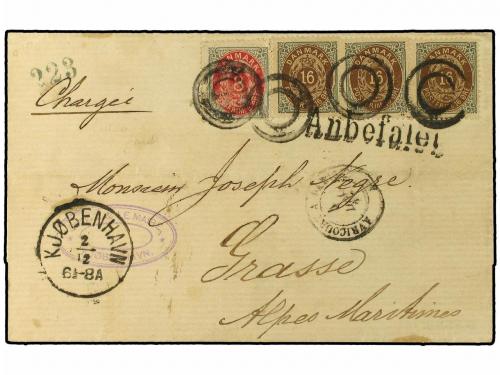 223
DANMARK DANMARK DANMARK DANMARK
8 16 16 16
Chargée
Anbefalet
Monsieur Joseph Nègre.
AVRICOURT A
KJØBENHAVN
2
12
6½-8A
Grasse
Alpes Maritimes